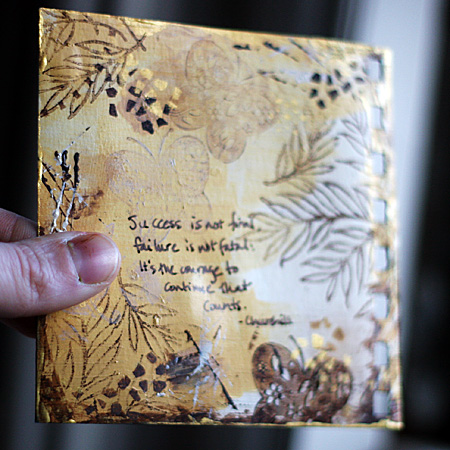 Success is not final,
failure is not fatal:
It's the courage to
continue that
counts.
- Churchill